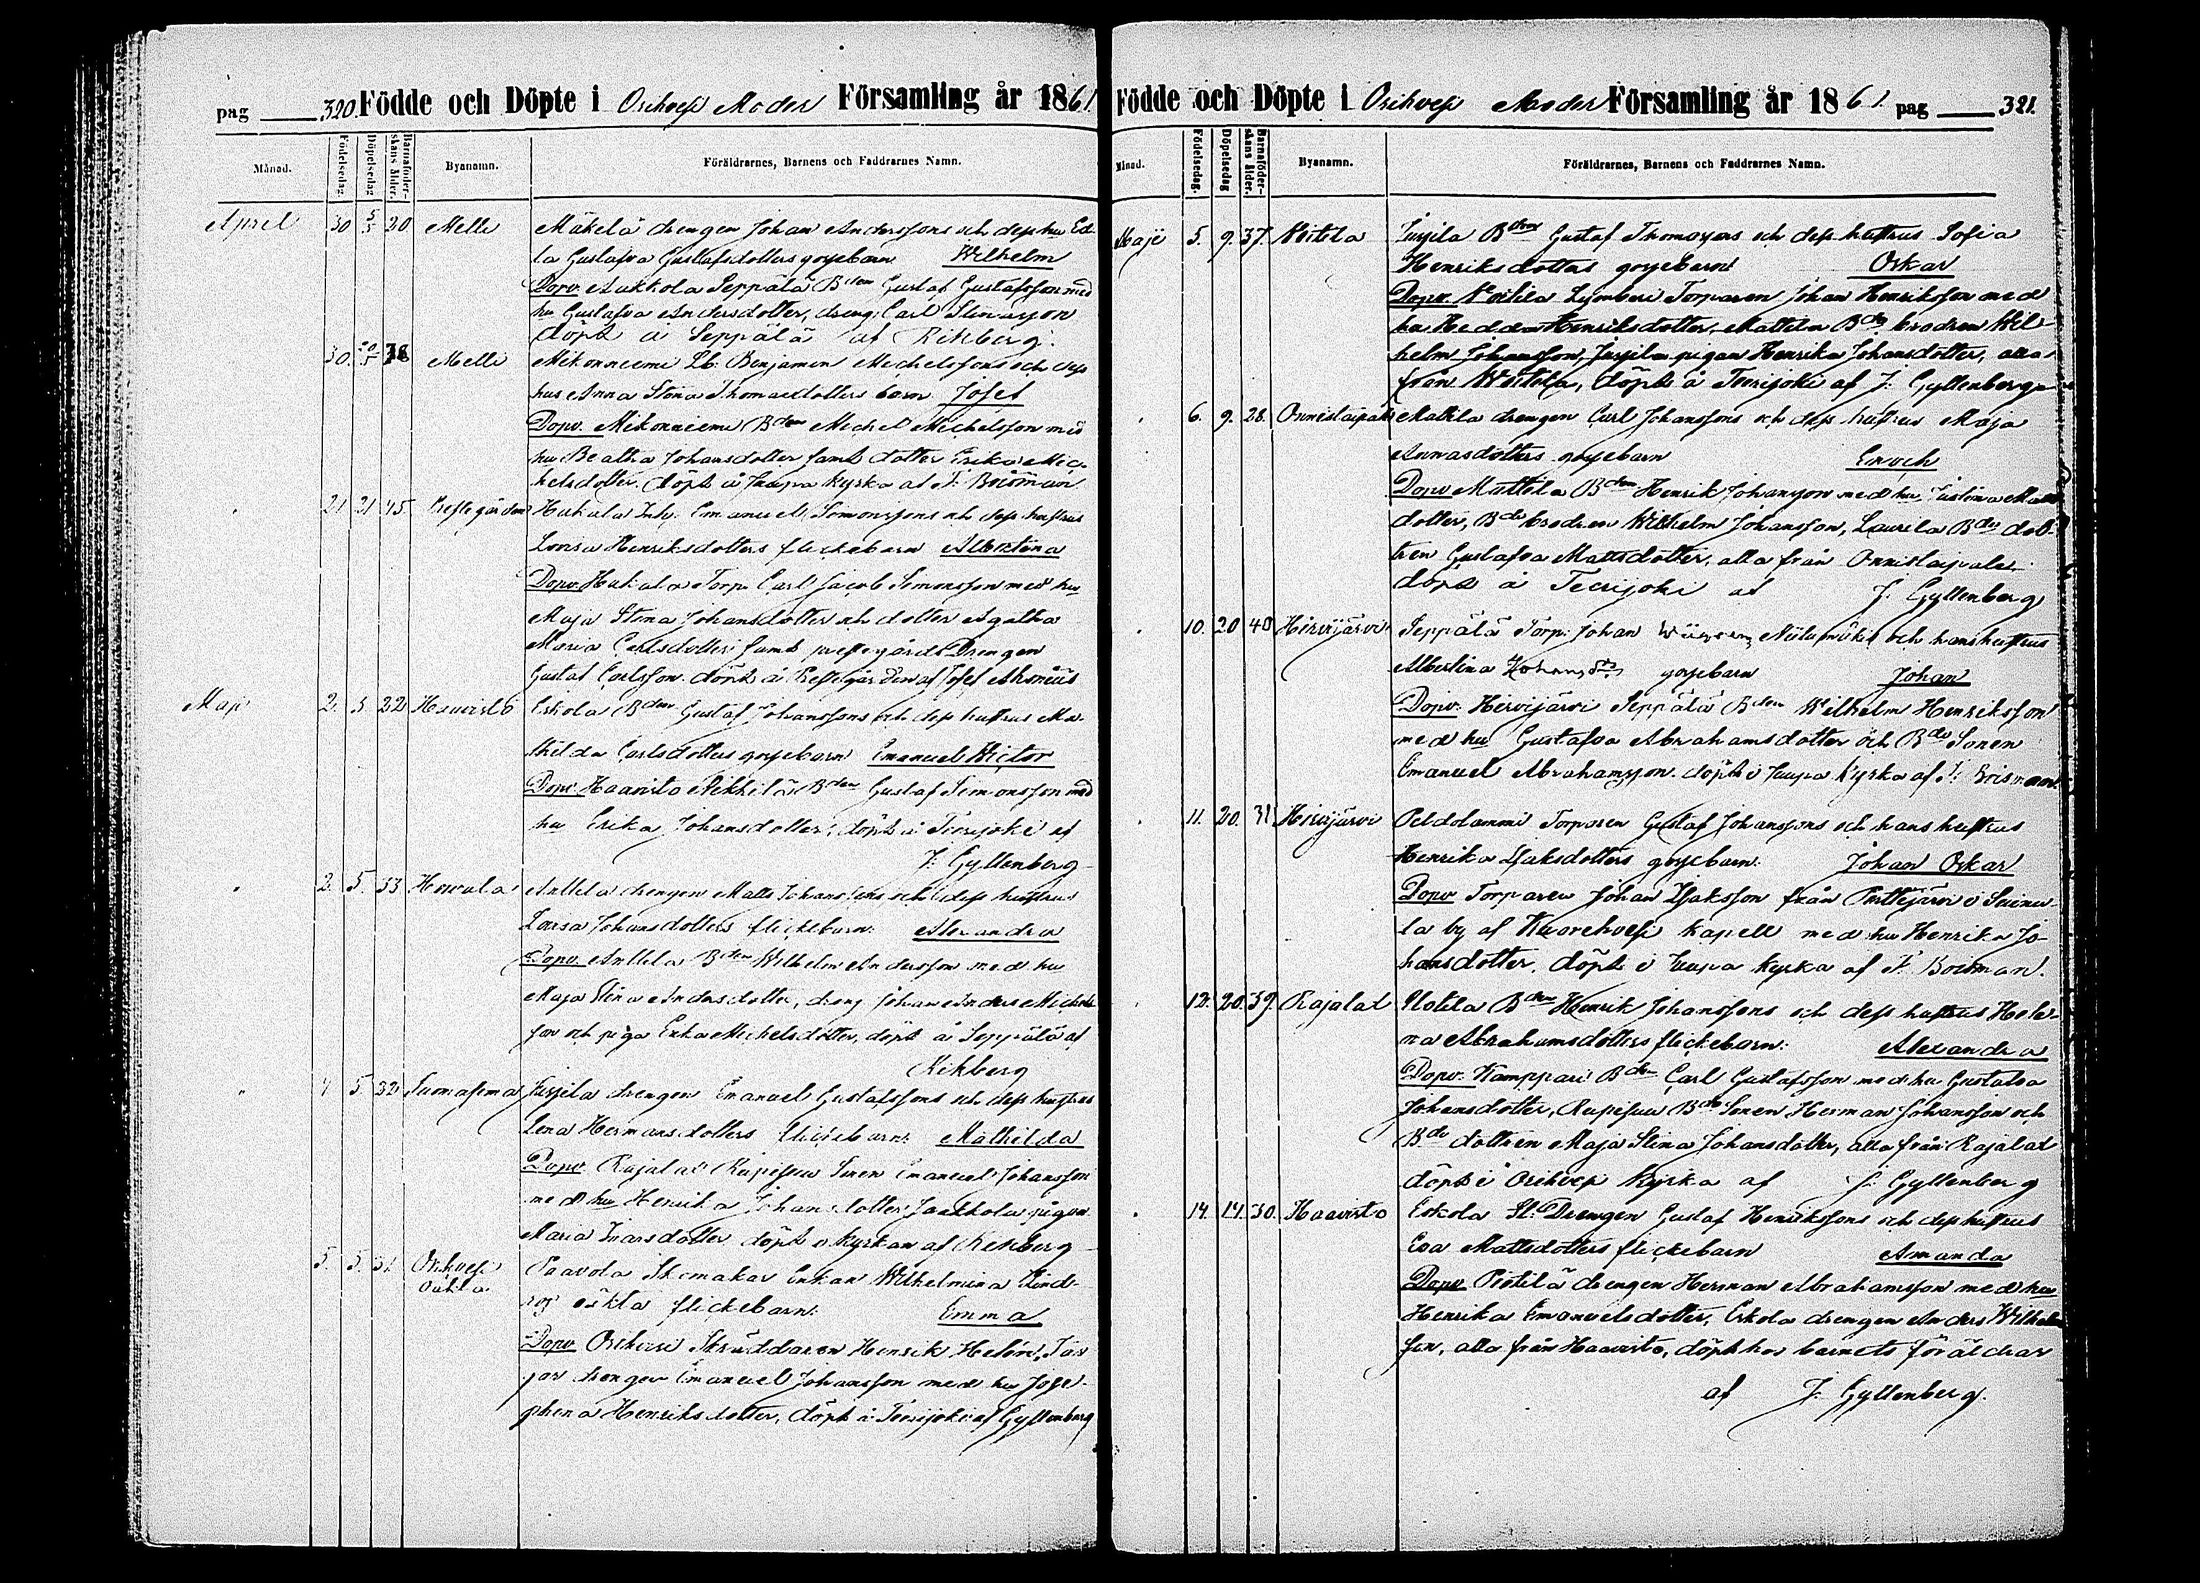 pag 320. Födde och Döpte i Orihvesi Moder Församling år 1861
Månad. Födelsedag. Döpelsedag Barnaföderskans ålder. Byanamn. Föräldrarnes, Barnens och Faddrarnes Namn.
April 30 5/5 20 Melli Mäkelä drengen Johan Anderssons och dess hu Ed-
la Gustafva Gustafsdotters gossebarn Wilhelm
Dopv. Aukkola Seppälä Bden Gustaf Gustafsson med
hu Gustafva Andersdotter, dreng. Carl
döpt å Seppälä af Rikberg.
30. Melli Mikonniemi Benjamin Michelssons och dess
hus Anna Stina Thomasdotters barn Josef
Dopv. Mikonniemi Bden Michel Michelsson med
hu Beatha Johansdotter samt dotter Erika Mic-
helsdotter. döpt i Juupa Kyrka af F: Boisman
21 21 45. Prestegården Hakala Inh. Emanuel Simonssons och dess hustrus
Lovisa Henriksdotters flickebarn Albertina
Dopv. Hakala Torp. Carl Jacob Simonsson med hu
Maja Stina Johansdotter och dotter Agatha
Maria Carlsdotter samt prestegårds Drengen
Gustaf Carlsson. döpt å Prestegården af Josef
Maji 2. 5 22 Haavisto Eskola Bden Gustaf Johanssons och dess hustrus Ma-
thilda Carlsdotters gossebarn Emanuel Victor
Dopv. Haavisto Bden Gustaf Simonsson med
hu Erika Johansdotter, döpt å Teerijoki af
J: Gyllenberg
" 2. 5. 33 Anttila drengen Matts Johanssons och dess hustrus
Lovisa Johansdotters flickebarn. Alexandra
Dopv. Anttila Bden Wilhelm Andersson med hu
Maja Stina Andersdotter, dreng Johan Anders Michels
son och piga Erika Michelsdotter, döpt å Seppälä af
Rikberg
" 4 5. 32 Jussila drengen Emanuel Gustafssons och dess hustrus
Lena Hermansdotters flickebarn. Mathilda
Dopv. Rajalat Rupisuu Sonen Emanuel Johansson
med hu Henrika Johansdotter Jaakkola pigan
Maria Ivarsdotter döpt i kyrkan af Rikberg
5. 5. Orihvesi Paavola Skomakar Enkan Wilhelmina Lind-
oäkta flickebarn. Emma
Dopv. Orihvesi Skräddaren Henrik Helén,
drengen Emanuel Johansson med hu Jose-
phina Henriksdotter, döpt å Teerijoki af Gyllenberg
Födde och Döpte i Orihvesi Moder Församling år 1861. pag 321.
Månad. Födelsedag. Döpelsedag Barnaföderskans ålder. Byanamn. Föräldrarnes, Barnens och Faddrarnes Namn.
Maji 5. 9. 37. Voitila Jussila Bden Gustaf Thomassons och dess hustrus Sofia
Henriksdotters gossebarn Oskar
Dopv. Voitila Torparen Johan Henriksson med
hu Hedda Henriksdotter, Mattila Bde brodren Wil-
helm Johansson, Jussila pigan Henrika Johansdotter, alla
från Voitila, döpt å Teerijoki af J: Gyllenberg
6. 9. 28. Onnistaipale Mattila drengen Carl Johanssons och dess hustrus Maja
Annasdotters gossebarn Enoch
Dopv Mattila Bden Henrik Johansson med hu Justina Matts
dotter, Bde brodren Wilhelm Johansson, Laurila Bde dot-
tren Gustafva Mattsdotter, alla från Onnistaipale.
döpt å Teerijoki af J: Gyllenberg
10. 20 40 Hirvijärvi Seppälä Torp: Johan och hans hustrus
Albertina gossebarn Johan
Dopv. Hirvijärvi Seppälä Bden Wilhelm Henriksson
med hu Gustafva Abrahamsdotter och Bde Sonen
Emanuel Abrahamsson. döpt i Juupa Kyrka af F: Boisman.
11. 20. 31 Hirvijärvi Peldolammi Torparen Gustaf Johanssons och hans hustrus
Henrika Isaksdotters gossebarn. Johan Oskar
Dopv Torparen Johan Isaksson från i
la by af Kuorehvesi Kapell med hu Henrika Jo-
hansdotter, döpt i Juupa Kyrka af F. Boisman.
12. 20. 39. Rajalat Uotila Bden Henrik Johanssons och dess hustrus Hele-
na Abrahamsdotters flickebarn. Alexandra
Dopv. Kamppari Bden Carl Gustafsson med hu Gustafva
Johansdotter, Rupisuu Bde Sonen Herman Johansson och
Bde dottren Maja Stina Johansdotter, alla från Rajalat
döpt i Orihvesi Kyrka af J: Gyllenberg
14. 14. 30. Haavisto Eskola St: Drengen Gustaf Henrikssons och dess hustrus
Eva Mattsdotters flickebarn Amanda
Dopv drengen Herman Abrahamsson med hu
Henrika Emanuelsdotter, Eskola drengen Anders Wilhelms
son, alla från Haavisto, döpt hos barnets föräldrar
af J: Gyllenberg.